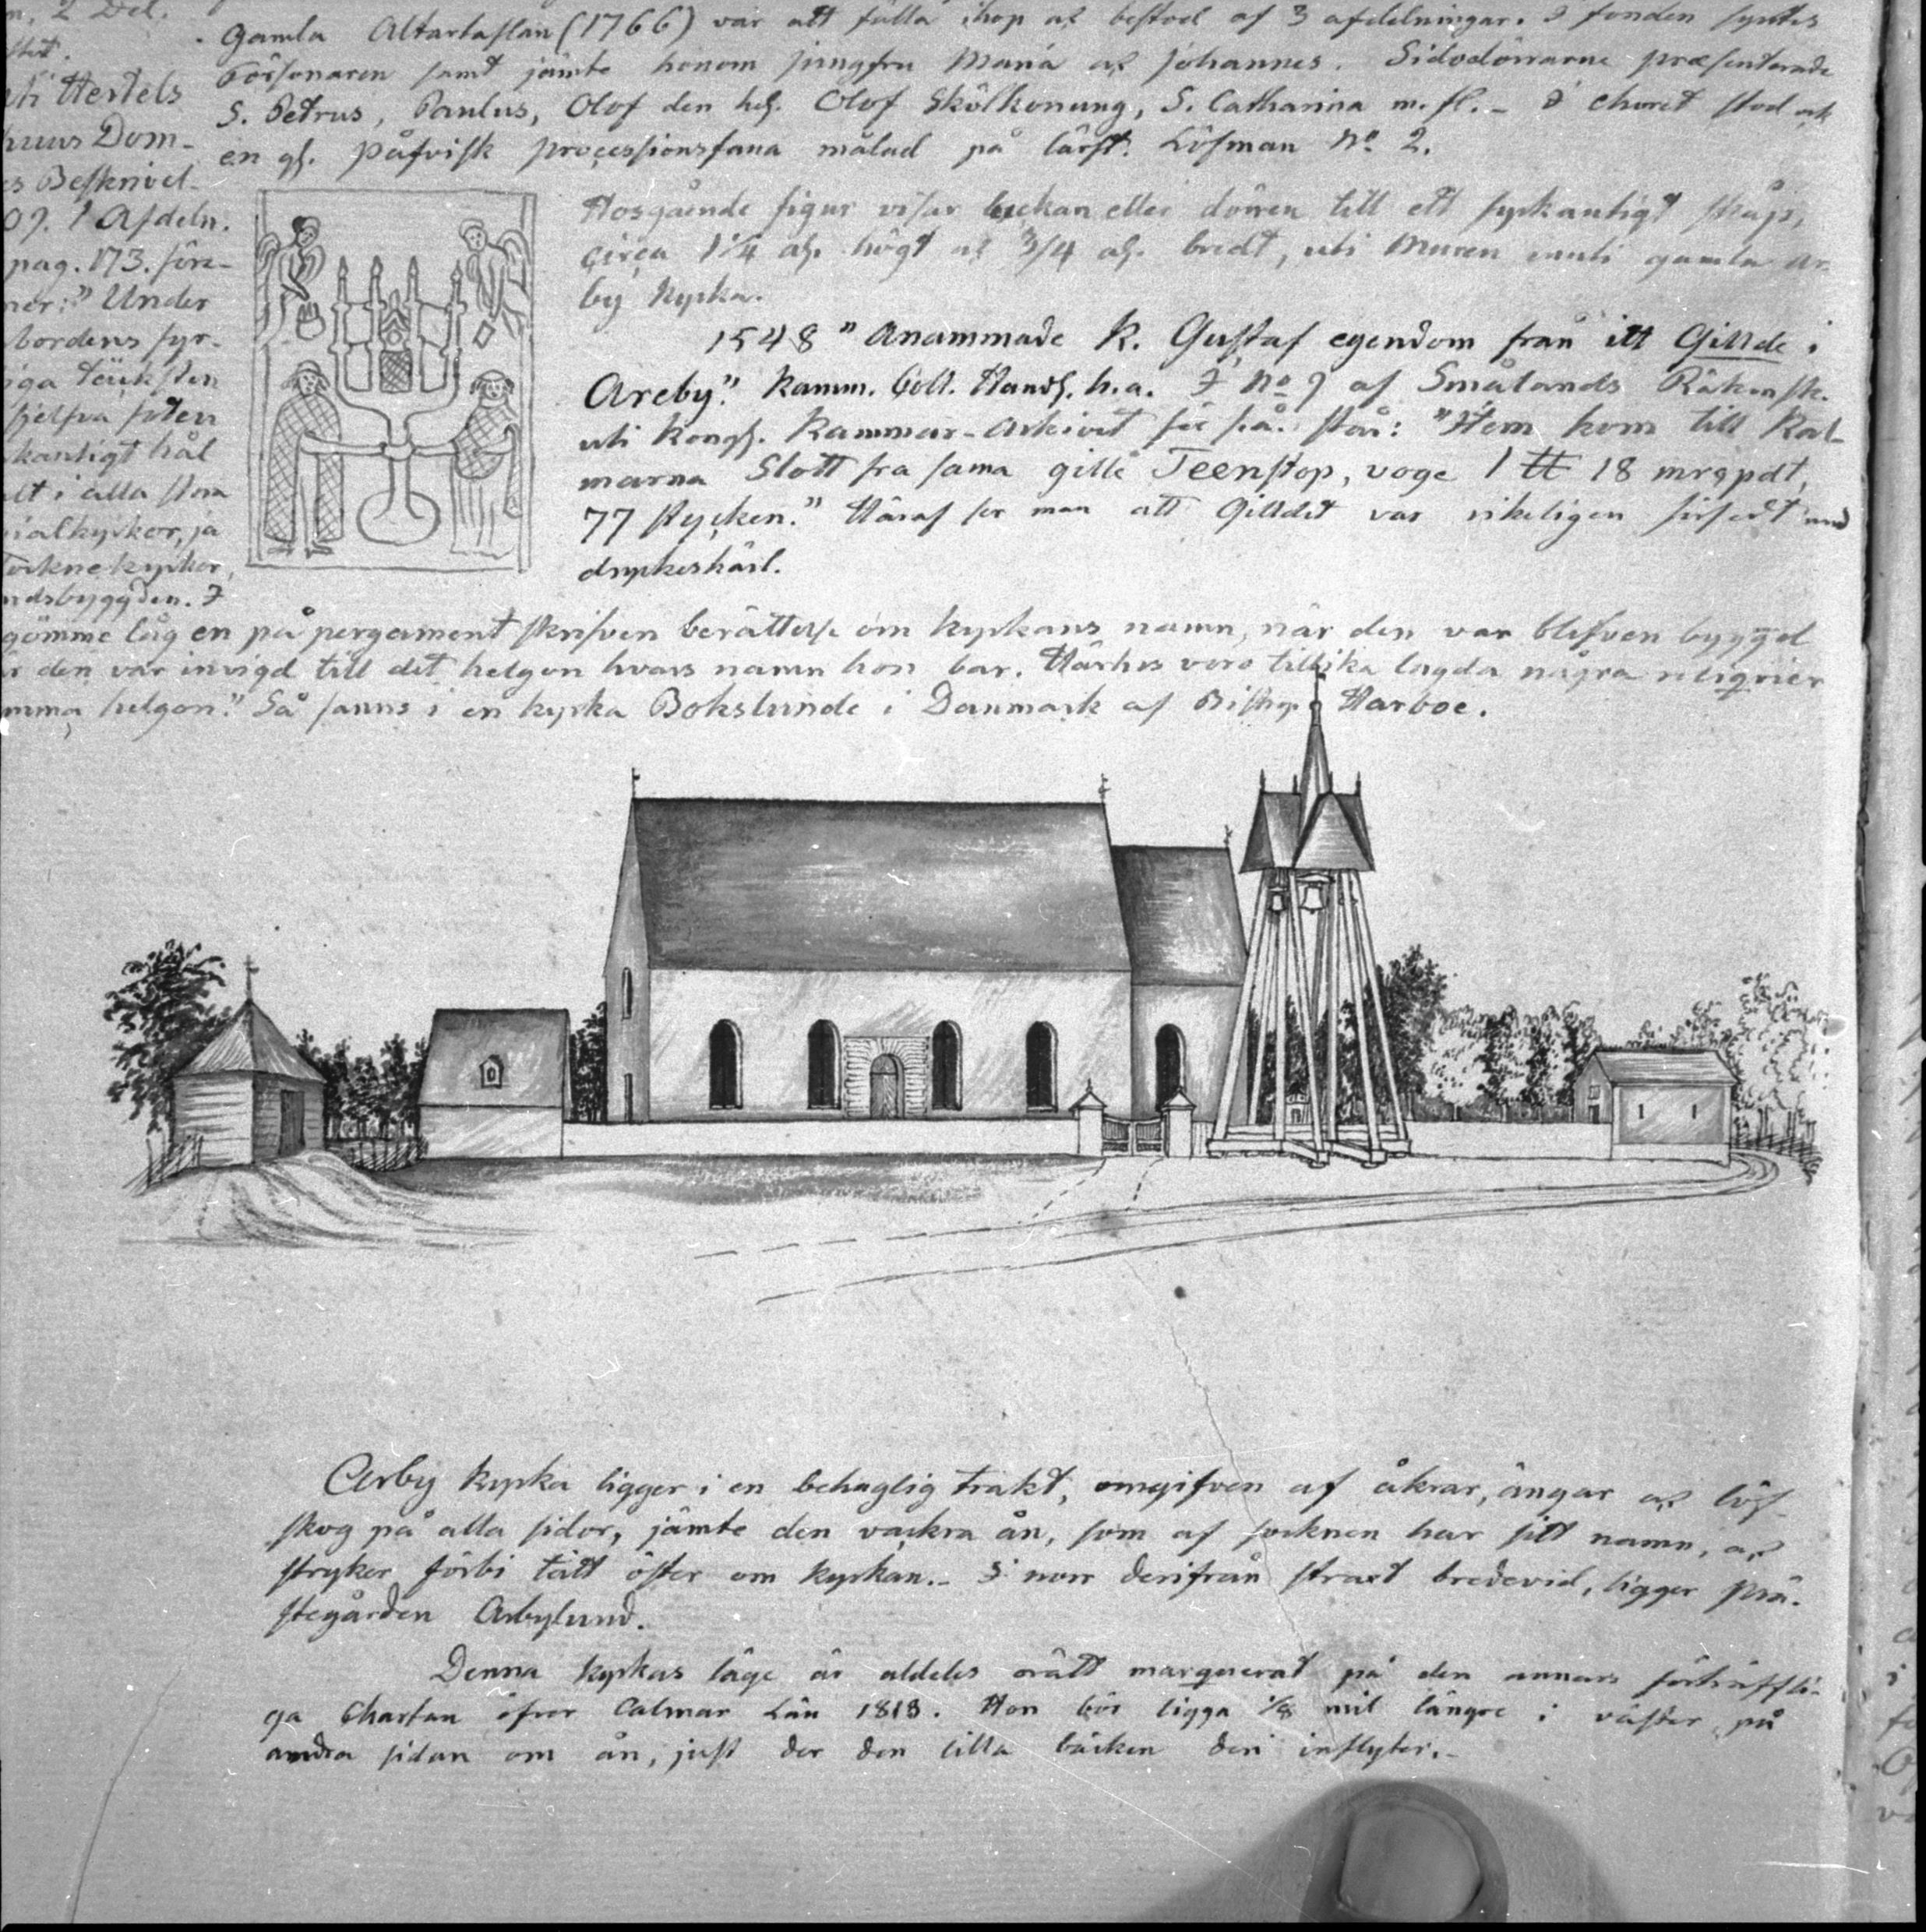 n, 2 Del.
Gamla Altartaflan (1766) var att fälla ihop oc bestod af 3 afdelningar. I fonden syntes
Försonaren samt jämte honom jungfru Maria oc Johannes. Sidodörrarne præsenterade
S. Petrus, Paulus, Olof den hel. Olof Skölkonung, S. Catharina m. fl. - I choret stod ock
en gl. påfvisk processionsfana målad på lärft. Löfman No. 2.
uti Hertels
huus Dom-
es Beskrivel-
09. 1 Afdeln.
pag. 173. före-
ner: " Under
bordens fyr-
sjelfva foten
kantigt hål
alt i alla stora
ialkyrkor, ja
sockne kyrkor,
ndsbyggden. I
Hosgående figur visar luckan eller dörren till ett fyrkantigt skåp,
circa 1 1/4 al. högt oc 3/4 al. bredt, uti Muren inuti gamla Ar-
by kyrka.
1548 " Anammade K. Gustaf egendom från itt Gillde i
Areby." Kamm. Coll. Handl. h. a. I No 9 af Smålands Räkensk.
uti Kongl. Kammar-Arkivet står: "Item kom till Kal-
marna Slott fra sama gille Teenstop, voge 1 tt 18 mrgpdt,
77 stycken." Häraf ser man att Gilldet var rikeligen försedt med
dryckeskärl.
gömme låg en på pergament skrifven berättelse om kyrkans namn, när den var blifven byggd
r den var invigd till det helgon hvars namn hon bar. Härhos voro tillika lagda några reliqvier
mma helgon." Så fanns i en kyrka Bokslunde i Danmark af Biskop Harboe.
Arby kyrka ligger i en behaglig trakt, omgifven af åkrar, ängar oc löf-
skog på alla sidor, jämte den vackra ån, som af socknen har sitt namn, oc
stryker förbi tätt öster om kyrkan. - I norr derifrån straxt bredevid, ligger Prä-
stegården Arbylund.
Denna kyrkas läge är aldeles orätt marquerat på den annars förträffli-
ga Chartan öfver Calmar Län 1818. Hon bör ligga 1/8 mil längre i väster, på
andra sidan om ån, just der den lilla bäcken deri inflyter. -